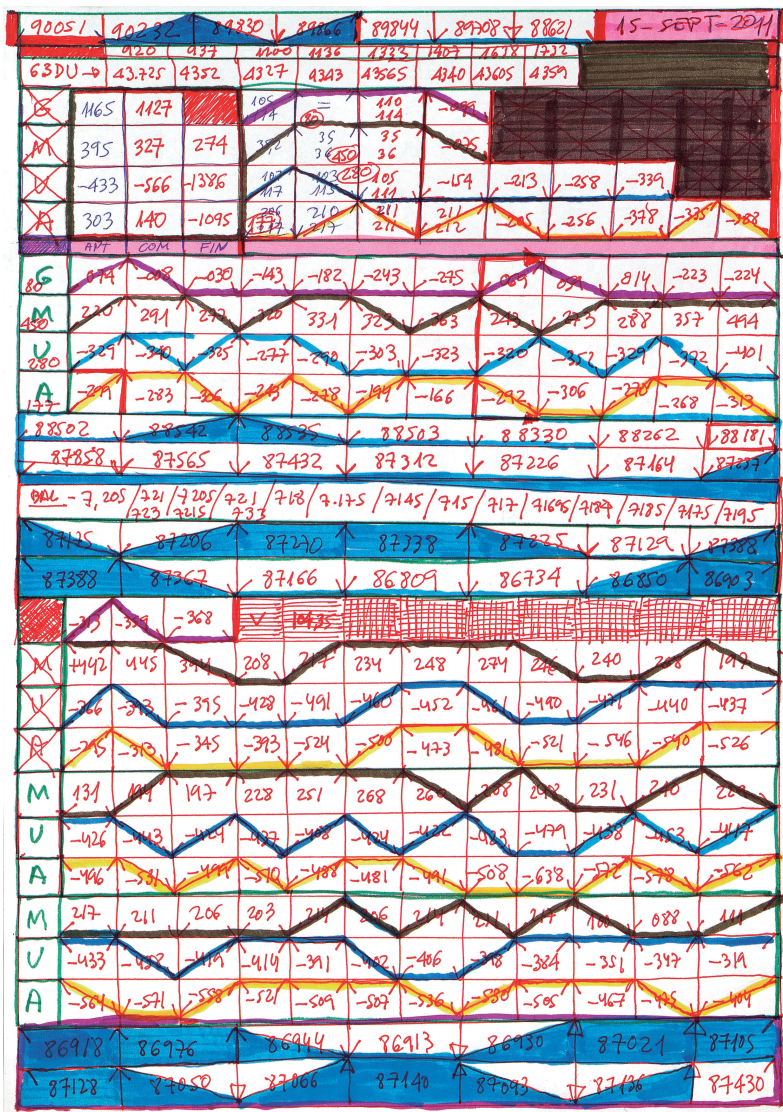 90051 90232 89830 89866 89844 89708 88621 15-SEPT-2011
920 937 1100 1136 1333 1407 1618 1732
63DU→ 43.725 4352 4327 4343 43565 4340 43605 4359
G 1165 1127 105 = 110
114 114
M 395 327 274 80 35 35
450 36
U -433 -566 -1386 280 105 -154 -213 -258 -339
117 115 111
A 303 140 -1095 210 211 211 -205 -256 -378 -335 -388
217 211 212
APT COM FIN
G 074 -008 -030 -143 -182 -243 -275 089 091 814 -223 -224
80
M 220 291 277 320 331 323 363 243 273 288 357 494
450
U -329 -340 -325 -277 -290 -303 -323 -320 -352 -329 -372 -401
280
A -299 -283 -306 -243 -278 -194 -166 -292 -306 -270 -268 -313
177
88502 88542 88535 88503 88330 88262 88181
87858 87565 87432 87312 87226 87164 87237
BAL - 7,205/721/7205/721/718/7.175/7145/715/717/7165/7184/7185/7175/7195
723 7215 733
87175 87206 87270 87338 87129 87388
87388 87367 87166 86809 86734 86850 86903
-359 -368 V
M +442 445 394 208 217 234 248 274 240 268 197
U -366 -393 -395 -428 -491 -460 -452 -461 -490 -471 -440 -437
A -295 -313 -345 -393 -524 -500 -473 -481 -521 -546 -540 -526
M 131 197 228 251 268 231 210
U -426 -443 -424 -437 -408 -424 -423 -479 -438 -453 -447
A -496 -531 -499 -570 -488 -481 -491 -508 -638 -572 -578 -562
M 217 211 206 203 206 211 217 088 111
U -433 -458 -419 -414 -391 -402 -406 -398 -384 -351 -347 -319
A -561 -571 -558 -521 -509 -507 -536 -530 -505 -467 -475 -404
86918 86976 86944 86913 86930 87021 87105
87128 87050 87066 87140 87093 87136 87430